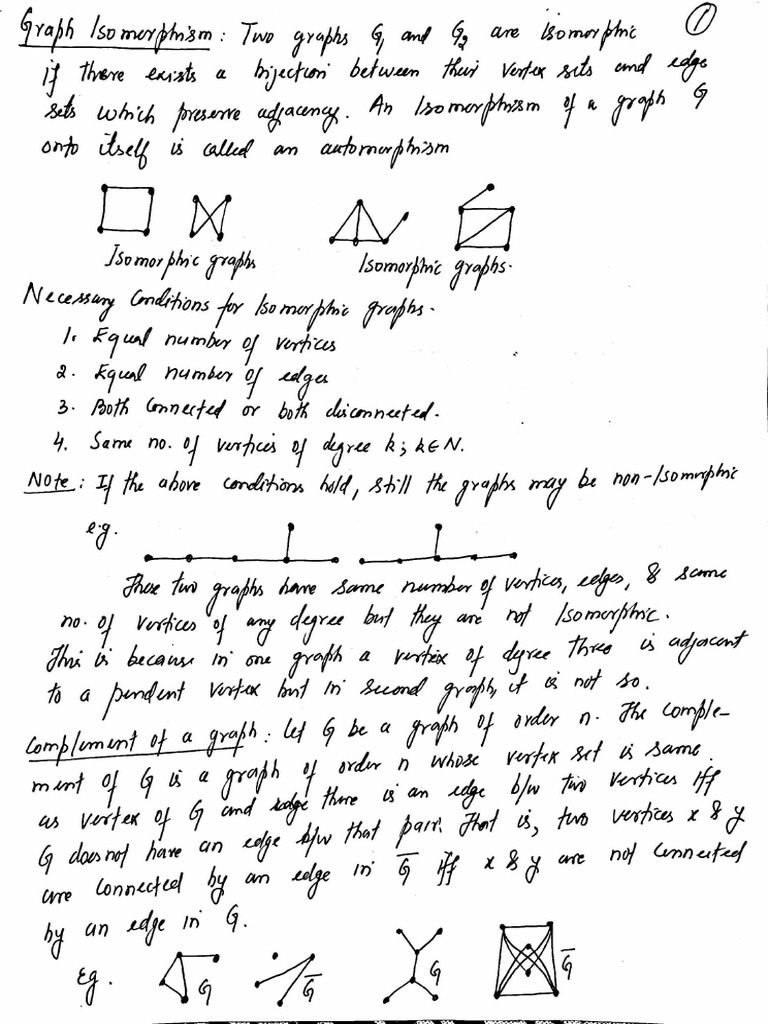 Graph Isomorphism: Two graphs G₁ and G₂ are isomorphic ①
if there exists a bijection between their vertex sets and edge
sets which preserve adjacency. An Isomorphism of a graph G
onto itself is called an automorphism
Isomorphic graphs Isomorphic graphs.
Necessary Conditions for Isomorphic graphs.
1. Equal number of vertices
2. Equal number of edges
3. Both connected or both disconnected.
4. Same no. of vertices of degree k; k∈N.
Note: If the above conditions hold, still the graphs may be non-Isomorphic
e.g.
These two graphs have same number of vertices, edges, & same
no. of vertices of any degree but they are not Isomorphic.
This is because in one graph a vertex of degree three is adjacent
to a pendent vertex but in second graph, it is not so.
Complement of a graph: Let G be a graph of order n. The comple-
ment of G is a graph of order n whose vertex set is same
as vertex of G and there is an edge b/w two vertices iff
G does not have an edge b/w that pair. That is, two vertices x & y
are connected by an edge in G̅ iff x & y are not connected
by an edge in G.
Eg. G G̅ G G̅